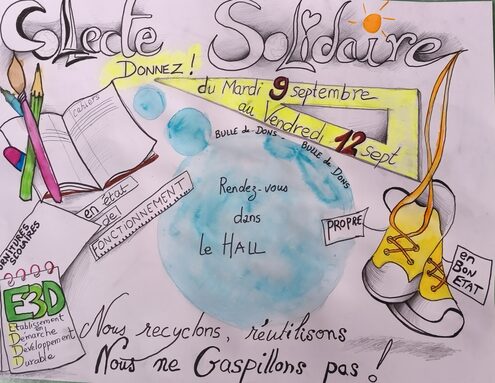 Colecte Solidaire
DONNEZ!
du Mardi 9 septembre
au Vendredi 12 sept
cahiers
BULLE de DONS - BULLE de DONS
en état
de
FONCTIONNEMENT
Rendez-vous
dans
le HALL
PROPRE
en
BON
ETAT
FOURNITURES
SCOLAIRES
E3D
Etablissement
Démarche
Développement
Durable
Nous recyclons, réutilisons
Nous ne Gaspillons pas !